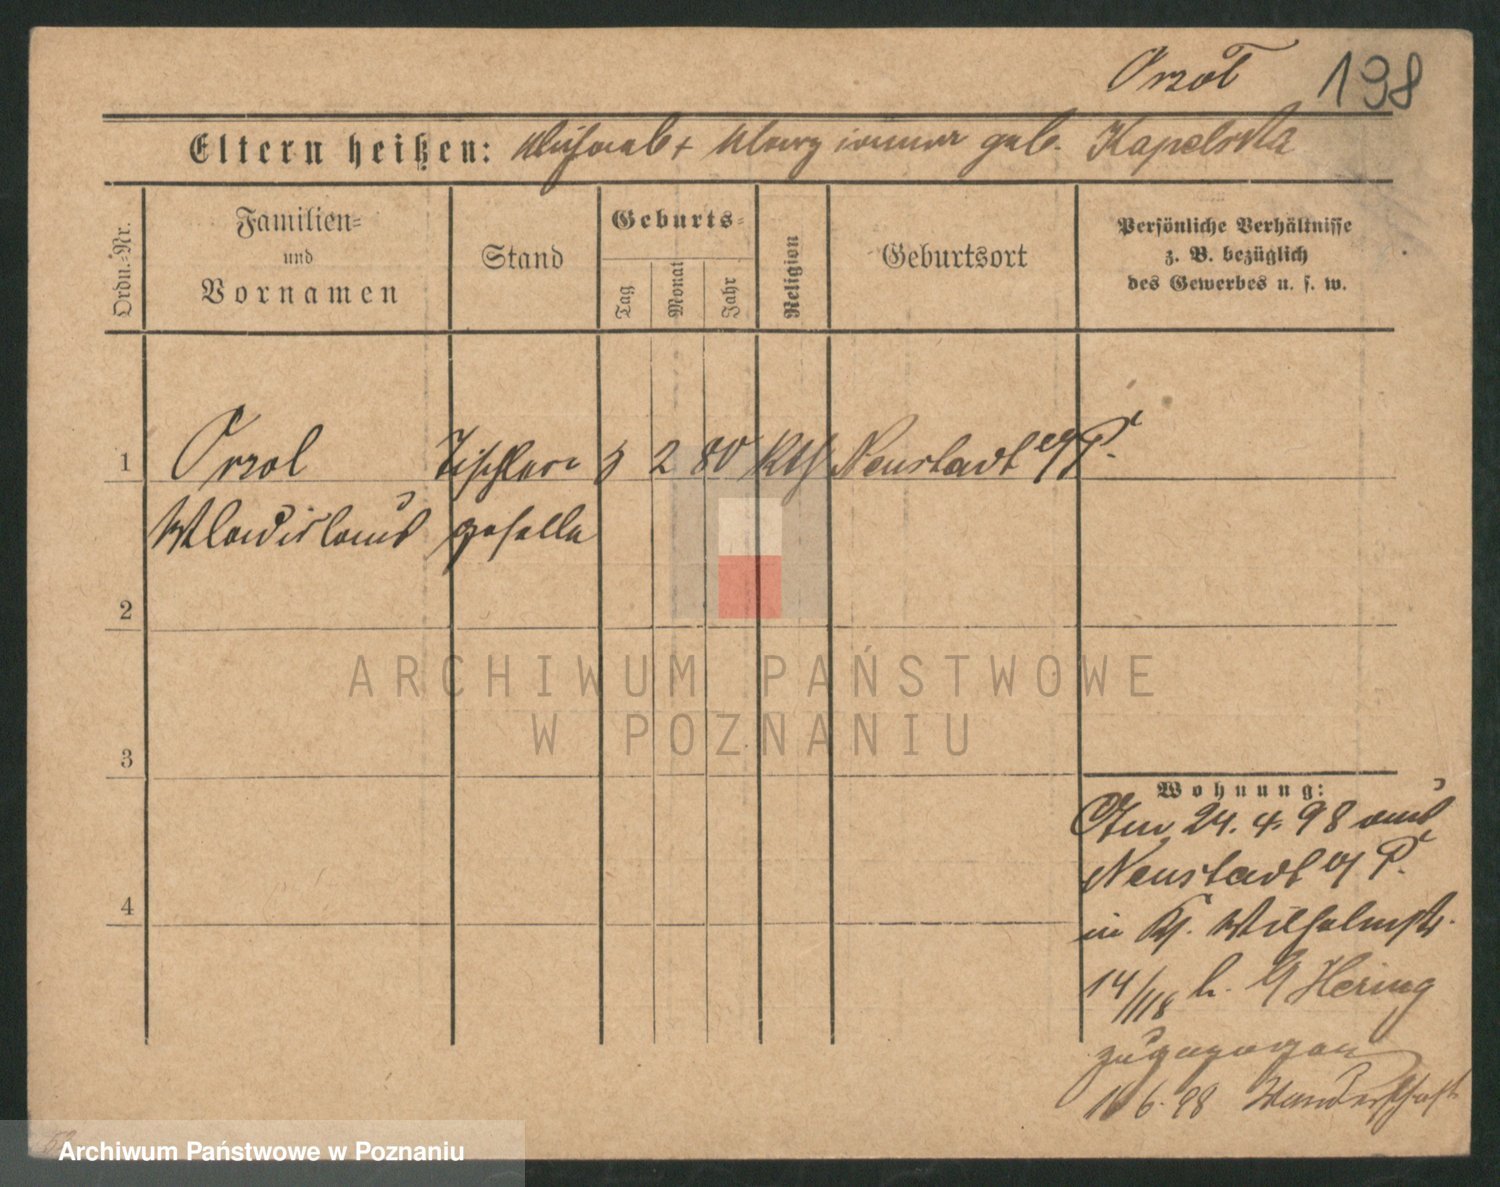 Orzol
198
Eltern heißen: Michael + Margianna geb. Kapelska
Ordn.-Nr.
Familien-
und
Vornamen
Stand
Geburts-
Tag
Monat
Jahr
Religion
Geburtsort
Persönliche Verhältnisse
z. B. bezüglich
des Gewerbes u. s. w.
1 Orzol Tischler 5 2 80 Kth Neustadt a/P.
Wladislaus geselle
2
3
4
Wohnung:
Am 24. 4. 98 aus
Neustadt a/P.
in Kl. Wilhelmstr.
14/118 b. Hering
zugezogen
6. 98 Wanderschaft
ARCHIWUM PAŃSTWOWE
W POZNANIU
Archiwum Państwowe w Poznaniu